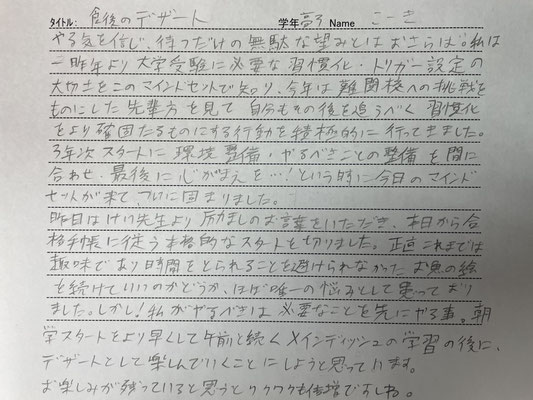 タイトル: 食後のデザート 学年 高3 Name こーき
やる気を信じ、待つだけの無駄な望みとはおさらば。私は
一昨年より大学受験に必要な習慣化・トリガー設定の
大切さをこのマインドセットで知り、今年は難関校への挑戦を
ものにした先輩方を見て自分もその後を追うべく習慣化
をより確固たるものにする行動を積極的に行ってきました。
3年次スタートに環境整備・やるべきことの整備を間に
合わせ、最後に心がまえを…!という時に今日のマインド
セットが来て、ついに固まりました。
昨日はけい先生より励ましのお言葉をいただき、本日から合
格手帳に従う本格的なスタートを切りました。正直これまでは
趣味であり時間をとられることを避けられなかったお魚の絵
を続けていいのかどうか、ほぼ唯一の悩みとして思っており
ました。しかし!私がやるべきは必要なことを先にやる事。朝
学スタートをより早くして午前と続くメインディッシュの学習の後に、
デザートとして楽しんでいくことにしようと思っています。
お楽しみが残っていると思うとワクワクも倍増ですしね。